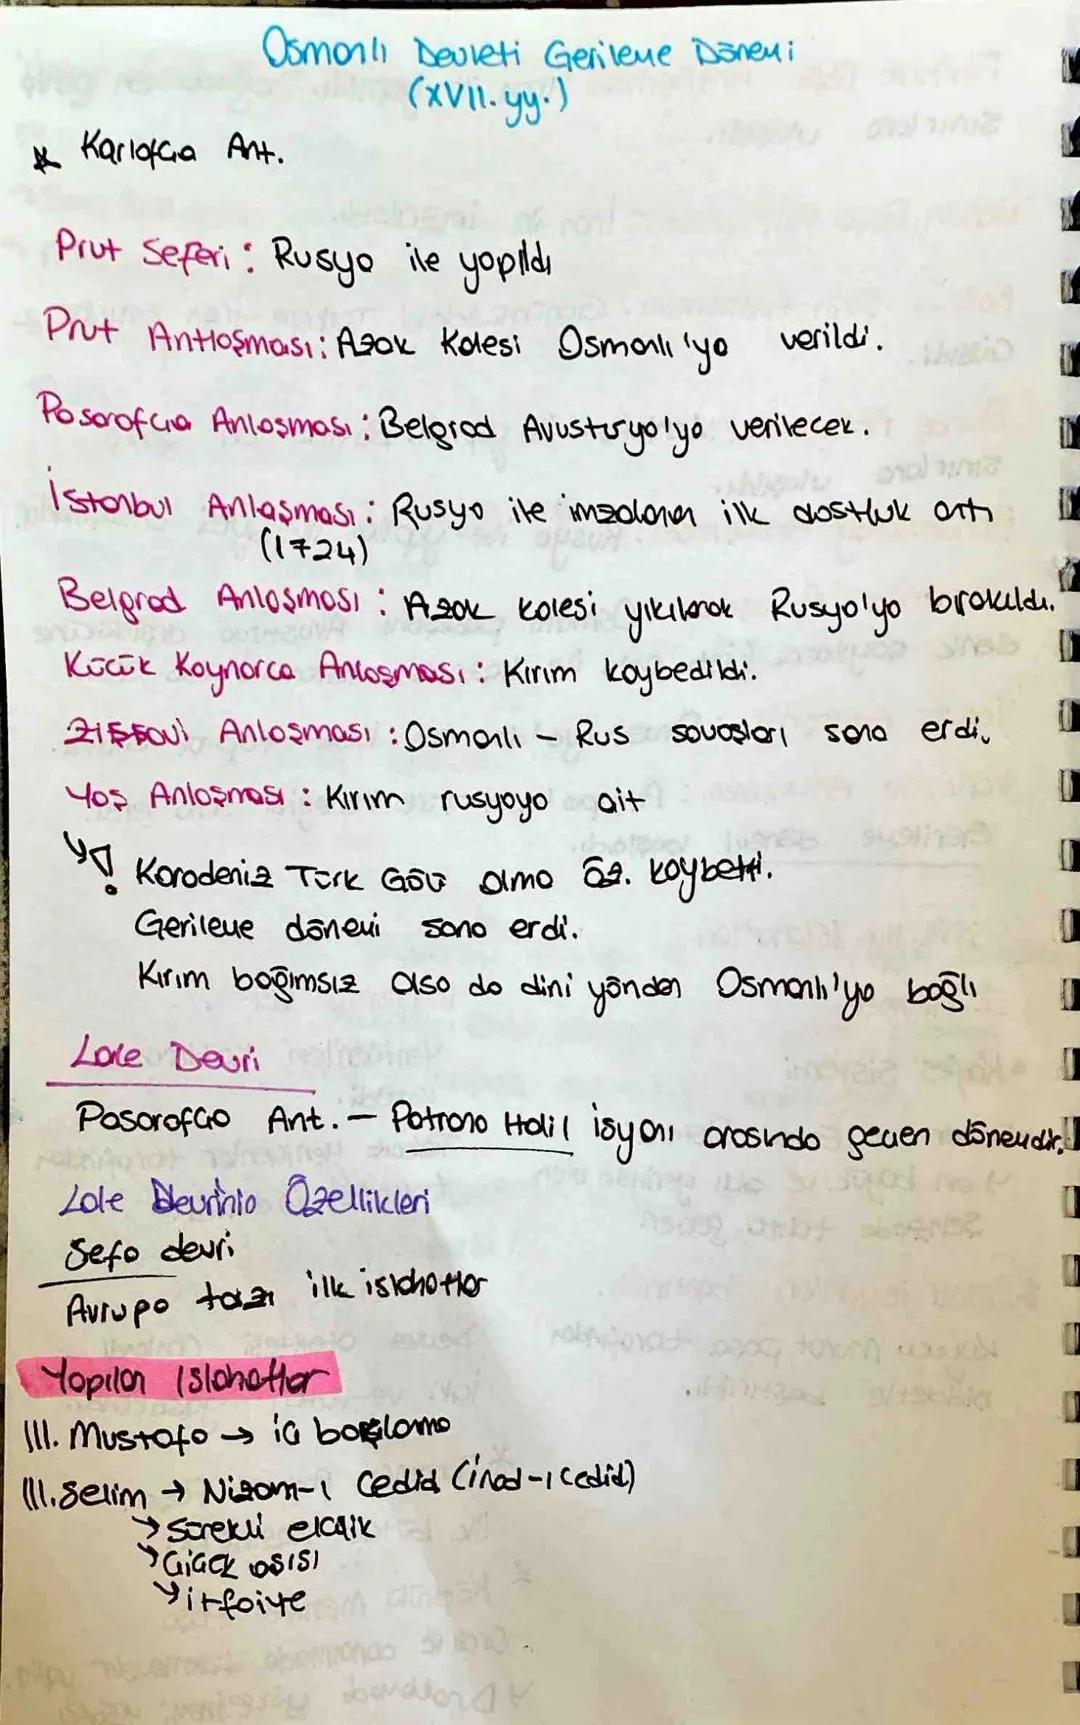 Osmanlı Devleti Gerileme Dönemi
(XVII.yy.)
* Karlofça Ant.
Prut Seferi: Rusya ile yapıldı
Prut Antlaşması: Azak Kalesi Osmanlı'ya verildi.
Pasarofça Anlaşması: Belgrad Avusturya'ya verilecek.
İstanbul Anlaşması: Rusya ile imzalanan ilk dostluk antı
(1724)
Belgrad Anlaşması: Azak kalesi yıkılarak Rusya'ya bırakıldı.
Küçük Kaynarca Anlaşması: Kırım kaybedildi.
Ziştovi Anlaşması: Osmanlı - Rus savaşları sona erdi.
Yaş Anlaşması: Kırım rusyaya ait
! Karadeniz Türk Gölü olma öz. kaybetti.
Gerileme dönemi sona erdi.
Kırım bağımsız olsa da dini yönden Osmanlı'ya bağlı
Lale Devri
Pasarofça Ant. - Patrona Halil isyanı arasında geçen dönemdir.
Lale Devrinin Özellikleri
Sefa devri
Avrupa tarzı ilk islahatlar
Yapılan Islahatlar
III. Mustafa → iç borçlama
III. Selim → Nizam-ı Cedid (İrad-ı Cedid)
→ Sürekli elçilik
→ Çiçek aşısı
→ itfaiye